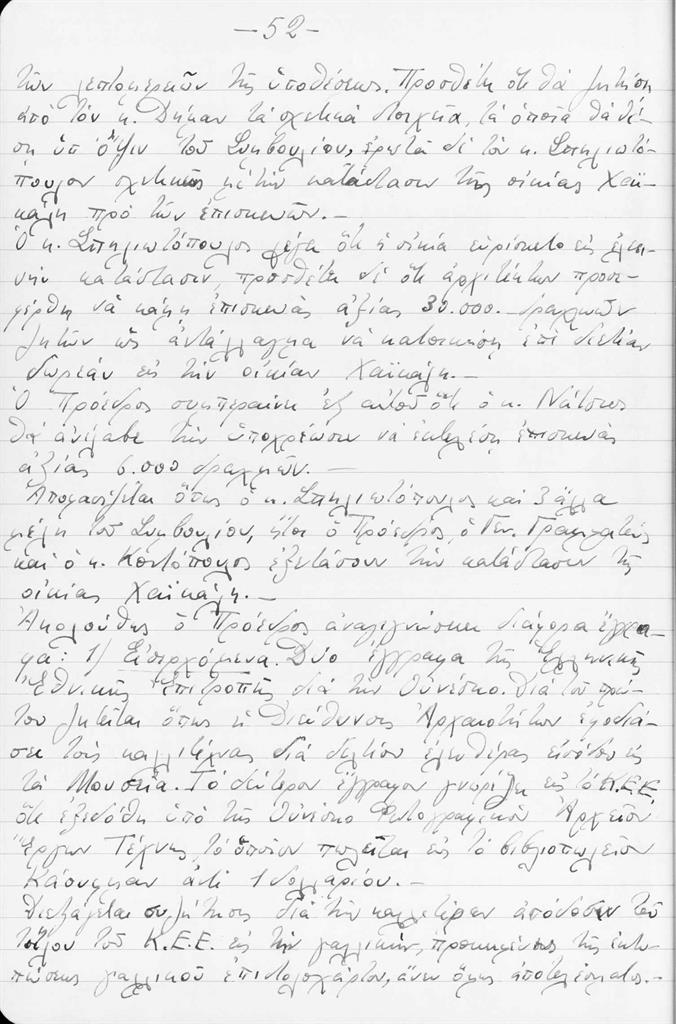 -52-
τῶν λεπτομερειῶν τῆς ὑποθέσεως. Προσθέτει ὅτι θὰ ζητήση
ἀπὸ τὸν κ. τὰ σχετικὰ στοιχεῖα, τὰ ὁποῖα θὰ θέ-
ση ὑπ' ὄψιν τοῦ Συμβουλίου, ἐρωτᾶ δὲ τὸν κ. Σπηλιωτό-
πουλον σχετικῶς μὲ τὴν κατάστασιν τῆς οἰκίας Χαϊ-
κάλη πρὸ τῶν ἐπισκευῶν.-
Ὁ κ. Σπηλιωτόπουλος λέγει ὅτι ἡ οἰκία εὑρίσκετο εἰς ἐλεει-
νὴν κατάστασιν, προσθέτει δὲ ὅτι ἀρχιτέκτων προσε-
φέρθη νὰ κάμη ἐπισκευὰς ἀξίας 30.000.- δραχμῶν
ζητῶν ὡς ἀντάλλαγμα νὰ κατοικήση ἐπὶ διετίαν
δωρεὰν εἰς τὴν οἰκίαν Χαϊκάλη.-
Ὁ Πρόεδρος συμπεραίνει ἐξ αὐτοῦ ὅτι ὁ κ. Νάτσιος
θὰ ἀνέλαβε τὴν ὑποχρέωσιν νὰ ἐκτελέση ἐπισκευὰς
ἀξίας 6.000 δραχμῶν.-
Ἀποφασίζεται ὅπως ὁ κ. Σπηλιωτόπουλος καὶ 3 ἄλλα
μέλη τοῦ Συμβουλίου, ἤτοι ὁ Πρόεδρος, ὁ Γεν. Γραμματεύς
καὶ ὁ κ. Κοντόπουλος ἐξετάσουν τὴν κατάστασιν τῆς
οἰκίας Χαϊκάλη.-
Ἀκολούθως ὁ Πρόεδρος ἀναγιγνώσκει διάφορα ἔγγρα-
φα: 1/ Εἰσερχόμενα. Δύο ἔγγραφα τῆς Ἑλληνικῆς
Ἐθνικῆς Ἐπιτροπῆς διὰ τὴν Οὐνέσκο. Διὰ τοῦ πρώ-
του ζητεῖται ὅπως ἡ Διεύθυνσις Ἀρχαιοτήτων ἐφοδιά-
σει τοὺς καλλιτέχνας διὰ δελτίου ἐλευθέρας εἰσόδου εἰς
τὰ Μουσεῖα. Τὸ δεύτερον ἔγγραφον γνωρίζει εἰς τὸ Κ.Ε.Ε.
ὅτι ἐξεδόθη ὑπὸ τῆς Οὐνέσκο Φωτογραφικὸν Ἀρχεῖον
Ἔργων Τέχνης, τὸ ὁποῖον πωλεῖται εἰς τὸ βιβλιοπωλεῖον
Κάουφμαν ἀντὶ 1 δολλαρίου.-
Διεξάγεται συζήτησις διὰ τὴν καλλιτέραν ἀπόδοσιν τοῦ
τίτλου τοῦ Κ.Ε.Ε. εἰς τὴν γαλλικὴν, προκειμένης τῆς ἐκτυ-
πώσεως γαλλικοῦ ἐπιστολοχάρτου, ἄνευ ὅμως ἀποτελέσματος.-